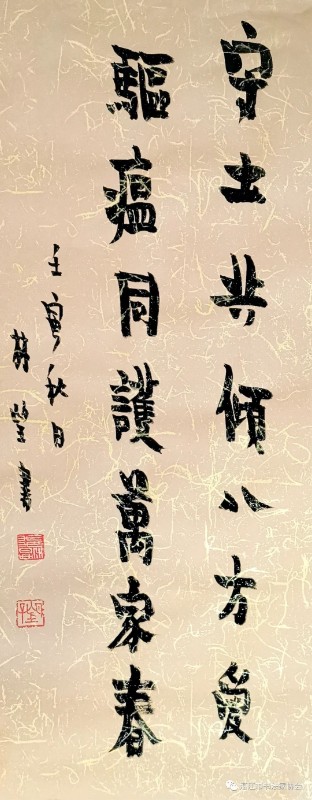 守土共倾八方爱
驅瘟同護萬家春
壬寅秋日
林莹書